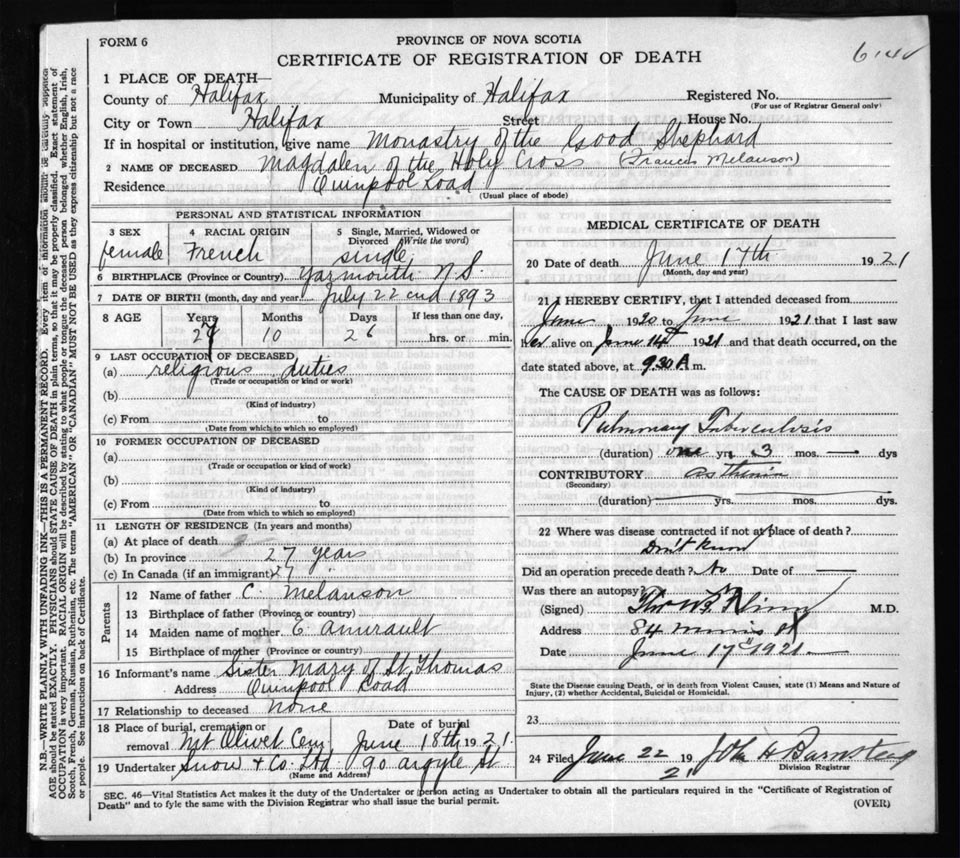 FORM 6
PROVINCE OF NOVA SCOTIA
CERTIFICATE OF REGISTRATION OF DEATH
1 PLACE OF DEATH—
County of Halifax Municipality of Halifax Registered No.
(For use of Registrar General only)
City or Town Halifax Street House No.
If in hospital or institution, give name Monastry of the Good Shephard
2 NAME OF DECEASED Magdalen of the Holy Cross (Frances Melanson)
Residence Quinpool Road
(Usual place of abode)
PERSONAL AND STATISTICAL INFORMATION
3 SEX female
4 RACIAL ORIGIN French
5 Single, Married, Widowed or Divorced (Write the word) single
6 BIRTHPLACE (Province or Country) Yarmouth N.S.
7 DATE OF BIRTH (month, day and year) July 22nd 1893
8 AGE Years Months Days If less than one day,
27 10 26 hrs. or min.
9 LAST OCCUPATION OF DECEASED
(a) religious duties
(Trade or occupation or kind or work)
(b)
(Kind of industry)
(c) From to
(Date from which to which so employed)
10 FORMER OCCUPATION OF DECEASED
(a)
(Trade or occupation or kind of work)
(b)
(Kind of industry)
(c) From to
(Date from which to which so employed)
11 LENGTH OF RESIDENCE (In years and months)
(a) At place of death
(b) In province 27 years
(c) In Canada (if an immigrant) 27
Parents
12 Name of father C. Melanson
13 Birthplace of father (Province or country)
14 Maiden name of mother E. Amirault
15 Birthplace of mother (Province or country)
16 Informant's name Sister Mary of St. Thomas
Address Quinpool Road
17 Relationship to deceased none
18 Place of burial, cremation or removal Mt Olivet Cem Date of burial June 18th 1921
19 Undertaker Snow & Co. Ltd 90 Argyle St
(Name and Address)
MEDICAL CERTIFICATE OF DEATH
20 Date of death June 17th 1921
(Month, day and year)
21 I HEREBY CERTIFY, that I attended deceased from
June 1920 to June 1921 that I last saw
her alive on June 14th 1921 and that death occurred, on the
date stated above, at 9.30 A. m.
The CAUSE OF DEATH was as follows:
Pulmonary Tuberculosis
(duration) one yrs. 3 mos. — dys
CONTRIBUTORY asthenia
(Secondary)
(duration) yrs. mos. dys.
22 Where was disease contracted if not at place of death?
Don't know
Did an operation precede death? No Date of —
Was there an autopsy?
(Signed) M.D.
Address 84 Morris St
Date June 17th 1921
State the Disease causing Death, or in death from Violent Causes, state (1) Means and Nature of
Injury, (2) whether Accidental, Suicidal or Homicidal.
23
24 Filed June 22 1921 John H Barnstead
Division Registrar
SEC. 46—Vital Statistics Act makes it the duty of the Undertaker or person acting as Undertaker to obtain all the particulars required in the "Certificate of Registration of
Death" and to fyle the same with the Division Registrar who shall issue the burial permit.
(OVER)
N.B.—WRITE PLAINLY WITH UNFADING INK—THIS IS A PERMANENT RECORD. Every item of information should be carefully supplied
AGE should be stated EXACTLY. PHYSICIANS should STATE CAUSE OF DEATH in plain terms, so that it may be properly classified. Exact statement of
OCCUPATION is very important. RACIAL ORIGIN will be described by stating to what people or tongue the deceased person belonged whether English, Irish,
Scotch, French, German, Russian, Ruthenian, etc. The terms "AMERICAN" OR "CANADIAN" MUST NOT BE USED as they express citizenship but not a race
or people. See instructions on back of Certificate.